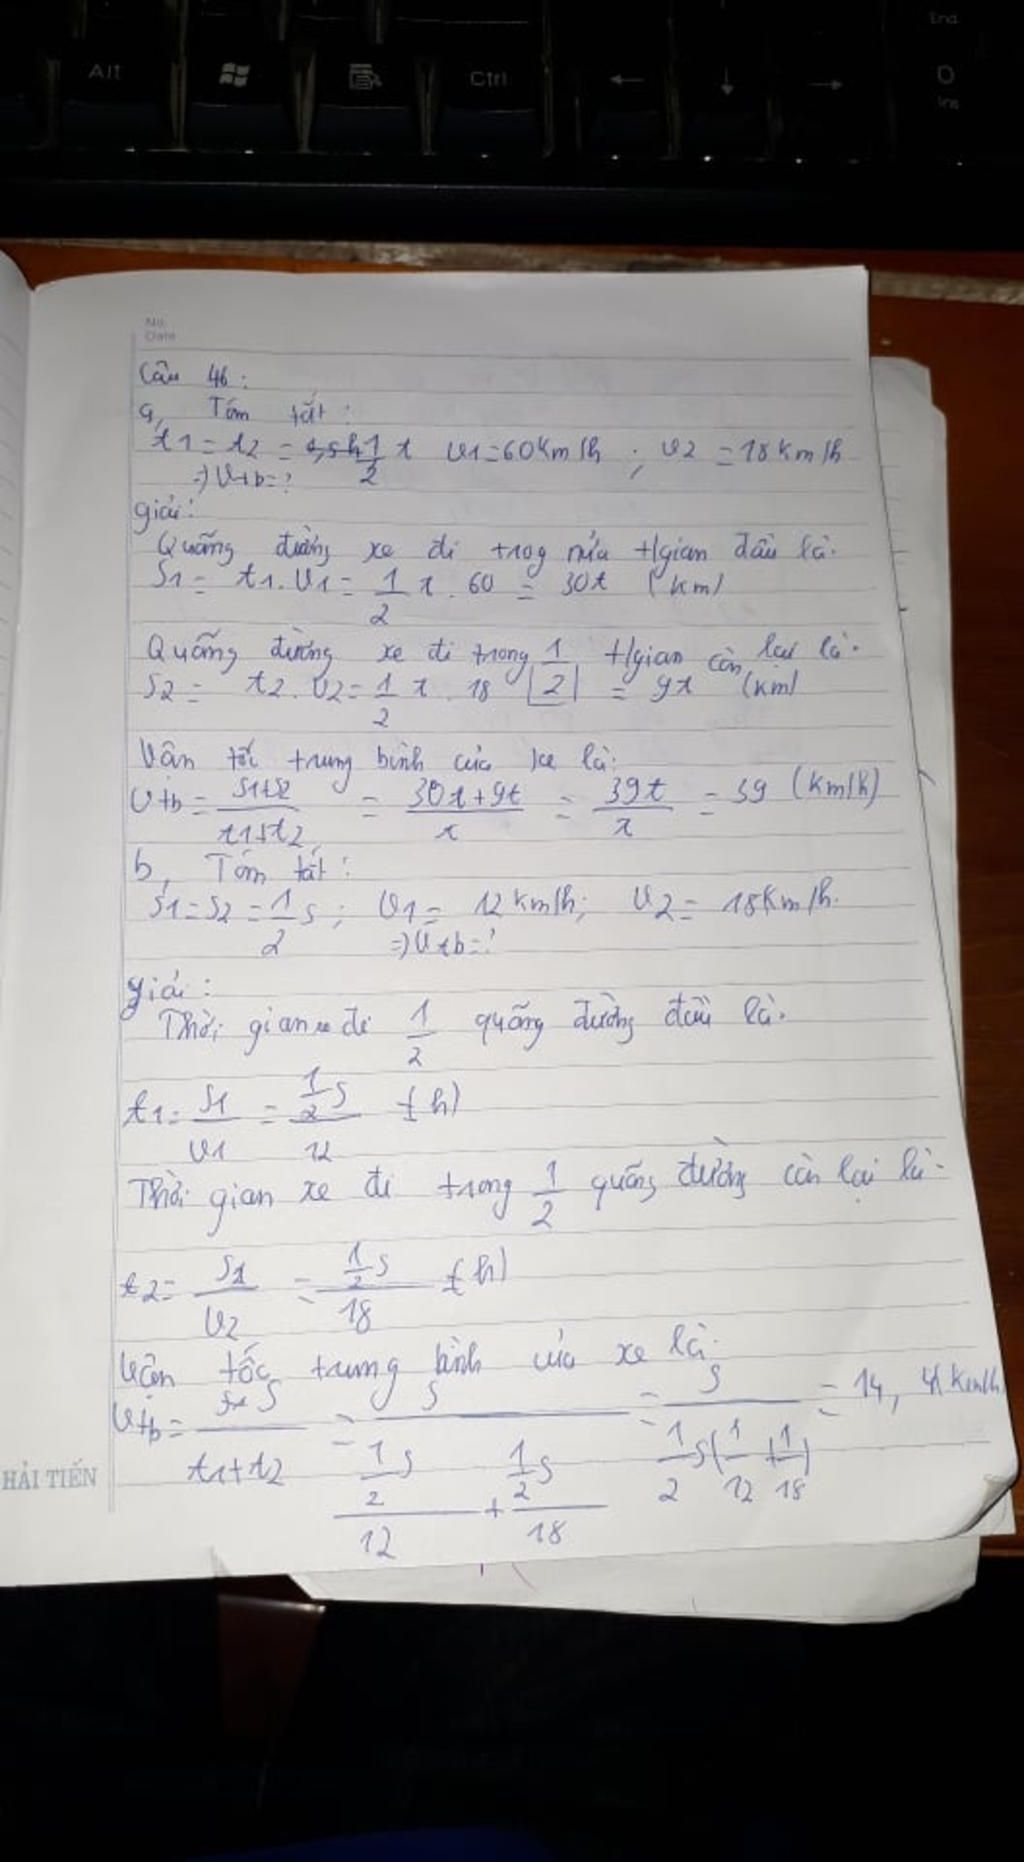 End
Alt
Ctrl
←
↓
→
0
Ins
No.
Date
Câu 46:
a, Tóm tắt:
t1 = t2 = 1/2 t v1=60km/h ; v2 = 18km/h
=) vtb = ?
giải:
Quãng đường xe đi trog nửa t/gian đầu là:
S1 = t1.v1 = 1/2 t . 60 = 30t (km)
Quãng đường xe đi trong 1/2 t/gian còn lại là:
S2 = t2.v2 = 1/2 t . 18 = 9t (km)
Vân tốc trung bình của xe là:
vtb = S1+S2/t1+t2 = 30t+9t/t = 39t/t = 39 (km/h)
b, Tóm tắt:
S1=S2 = 1/2 S; v1 = 12km/h; v2 = 18km/h.
=) vtb = ?
giải:
Thời gian xe đi 1/2 quãng đường đầu là:
t1 = S1/v1 = 1/2 S/12 (h)
Thời gian xe đi trong 1/2 quãng đường còn lại là:
t2 = S1/v2 = 1/2 S/18 (h)
Vận tốc trung bình của xe là:
vtb = S/t1+t2 = S/(1/2 S/12 + 1/2 S/18) = S/1/2 S(1/12 + 1/18) = 14,4 km/h
HẢI TIẾN